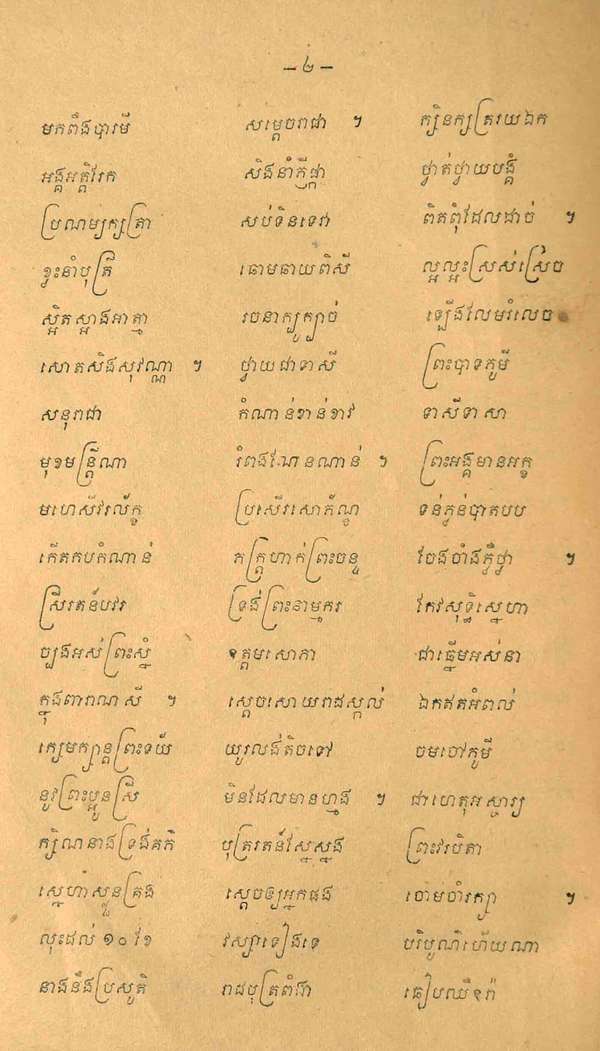 – ២ –
មកពឹងបារមី សម្តេចរាជា ។ ក្សិនក្សត្ររយឯក
អង្គអគ្គិរែក សិងនាំក្តីផ្កា ថ្វាត់ថ្វាយបង្គំ
ប្រណម្យក្សត្រា សប់ទិនទេវា ពិតពុំដែលដាច់ ។
ខ្វះនាំបុត្រី ធោមឆាយពិសី ល្អល្អះស្រស់ស្រេច
ស្អិតស្អាងអាត្មា រចនាក្បូក្បាច់ ឡើងលែមរំលេច
សោតសិងសុវណ្ណា ។ ថ្វាយជាទាសី ព្រះបាទភូមី
សនុរាជា កំណាន់ខាន់ខាវ ទាសីទាសា
មុខមន្ត្រីណា រំពងណែនណាន់ ។ ព្រះអង្គមានអក្ខ
មហេសីវរល័ក្ខ ប្រសើរសោភ័ណ្ឌ ទន់ភ្លន់បាតបប
កើតគប់កំណាន់ ភក្ត្រហាក់ព្រះចន្ទ ចែងចាំងភ្លឺថ្វា ។
ស្រីរតន៍បវរ ទ្រង់ព្រះនាមករ កែវសុទ្ធិស្នេហា
ច្បងអស់ព្រះស្នំ ឧត្តមសោភា ជាធ្នើមអស់នា
ក្នុងពារាណសី ។ ស្តេចសោយរាជស្កល់ ឯកឥតអំពល់
ក្សេមក្សាន្តព្រះទយ័ យូរលង់តិចទៅ ចមចៅភូមី
នូវព្រះប្អូនស្រី មិនដែលមានហ្មង ។ ជាហេតុអស្ចារ្យ
ក្សិណនាងទ្រង់គភ៌ បុត្ររតន៍ស្នែស្នង ព្រះវរបិតា
ស្នេហាស្ងួនគ្រង ស្តេចឲ្យអ្នកផង ចោមចាំរក្សា ។
លុះដល់ ១០ ខែ វស្សាទៀងទេ បរិបូណ៌ហើយណា
នាងនឹងប្រសូតិ រាជបុត្រពីងា ធៀបឈឺខ្វ៉ា